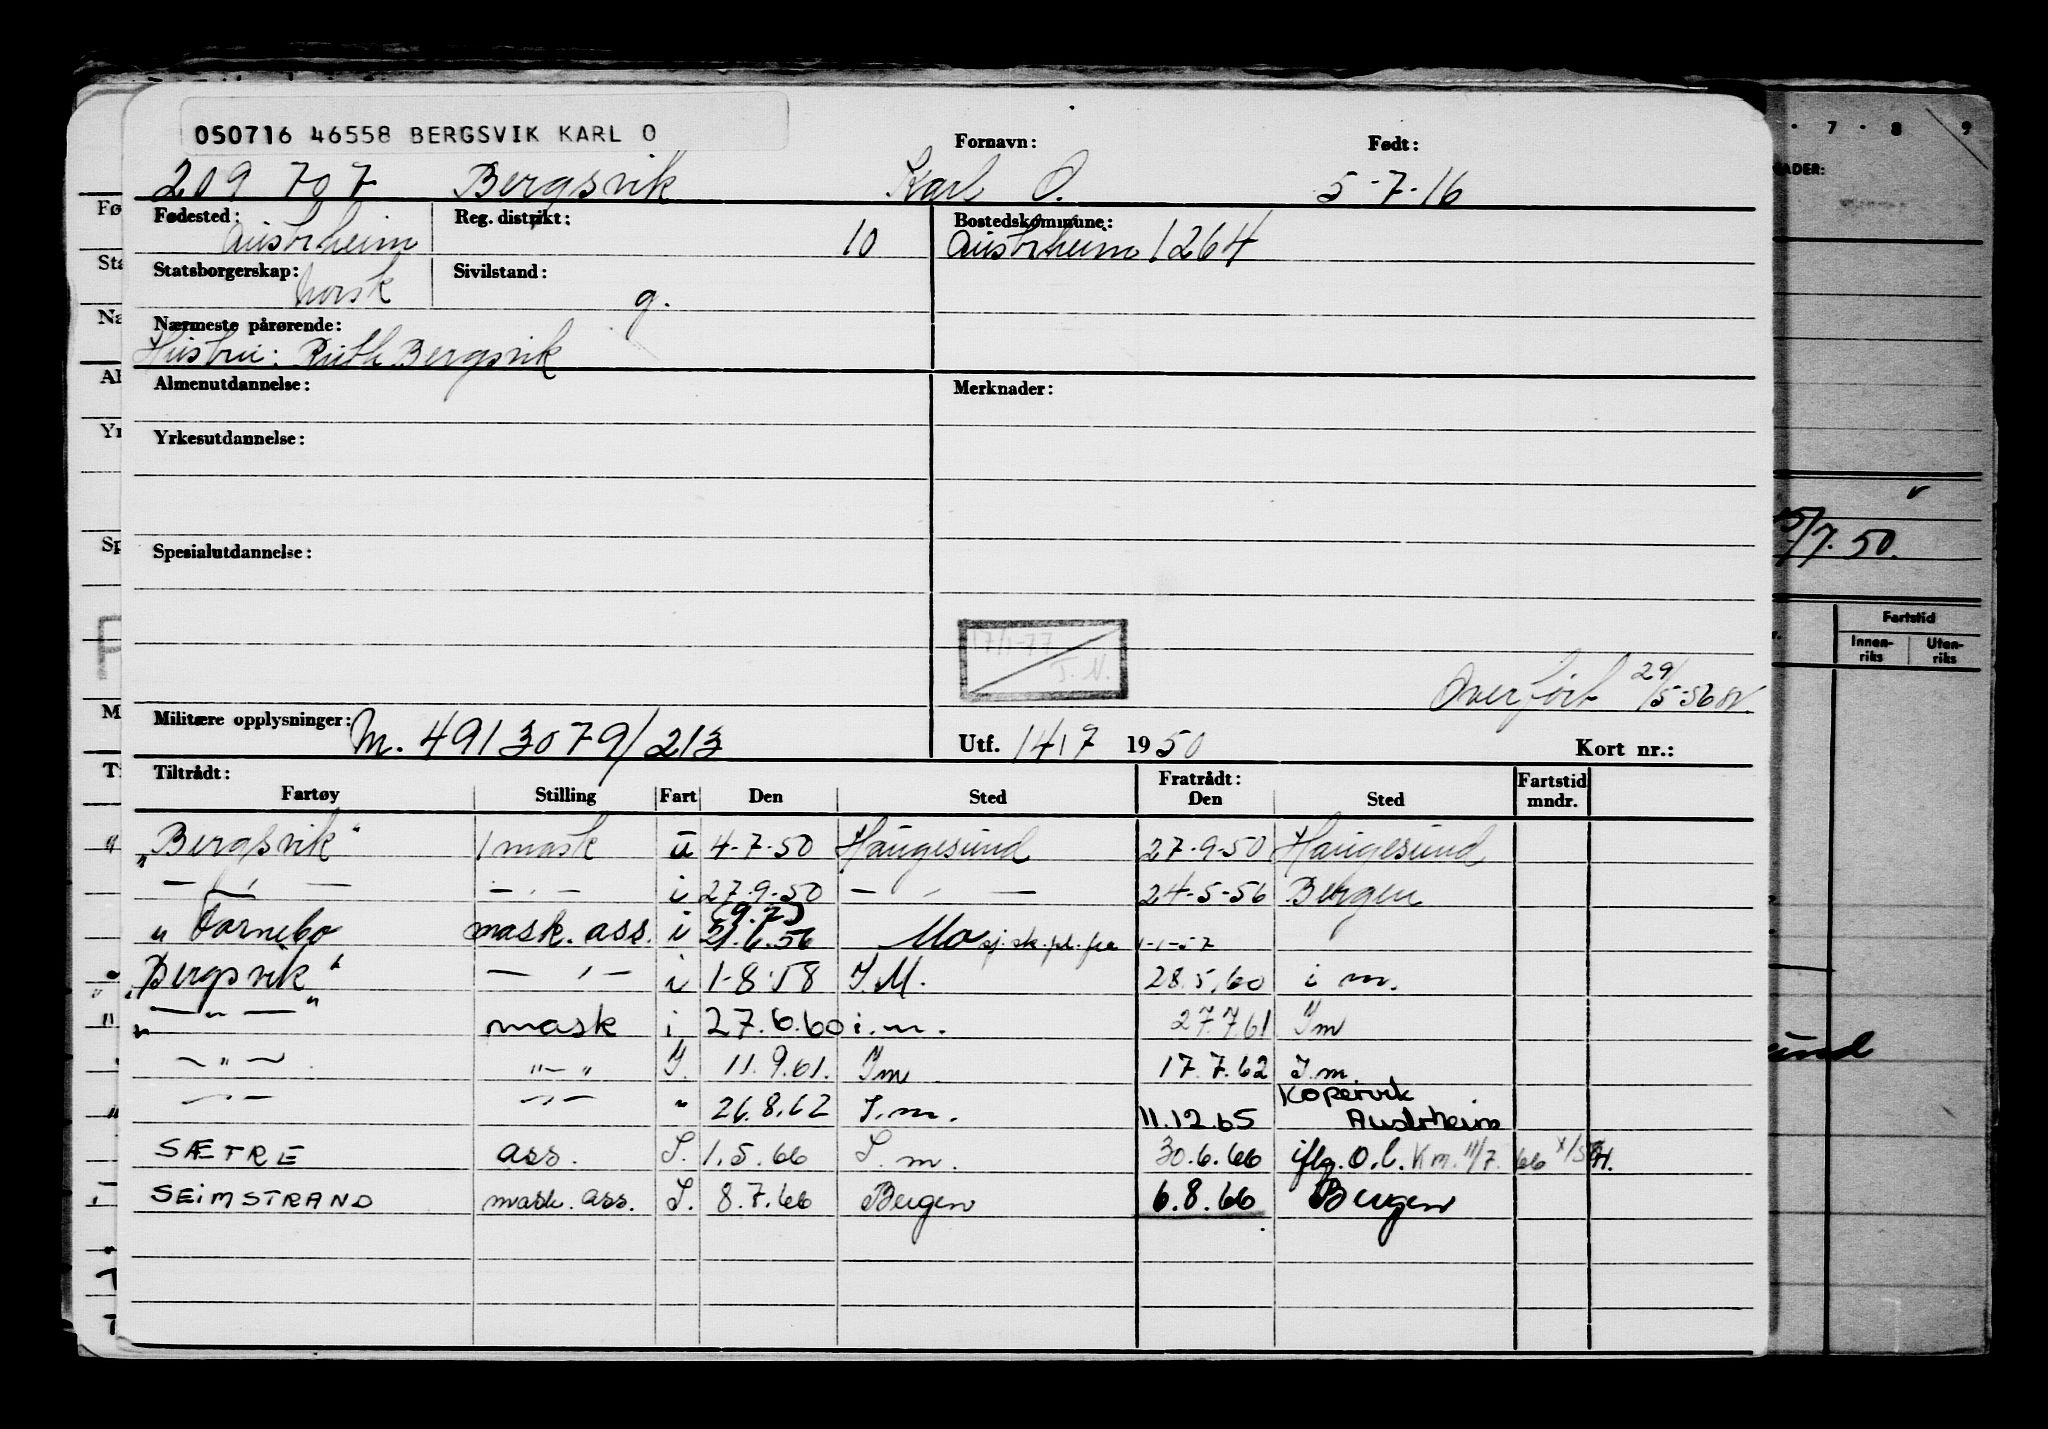 050716 46558 BERGSVIK KARL O
Fornavn: Født:
209 707 Bergsvik Karl O. 5-7-16
Fødested: Reg. distrikt: Bostedskommune:
Austrheim 10 Austrheim 1264
Statsborgerskap: Sivilstand:
norsk g.
Nærmeste pårørende:
Hustru: Ruth Bergsvik
Almenutdannelse: Merknader:
Yrkesutdannelse:
Spesialutdannelse:
17/1-77
T. N.
Overført 29/5-56
Militære opplysninger: M. 4913079/213 Utf. 14/7 1950 Kort nr.:
Tiltrådt: Fratrådt: Fartstid
Fartøy Stilling Fart Den Sted Den Sted mndr.
„Bergsvik“ 1 mask u 4-7-50 Haugesund 27-9-50 Haugesund
— „ — — „ — i 27.9.50 — „ — 24-5-56 Bergen
„Fornebo mask. ass. i 21.6.56 Mo sj. sk. pl. fra 1-1-57
„Bergsvik“ — „ — i 1-8-58 I.M. 28.5.60 i m.
„ — „ — “ mask i 27.6.60 i.m. 27.7.61 Im
— „ — — „ — I. 11.9.61. Im 17.7.62 I.m.
— „ — — „ — „ 26.8.62 I.m. 11.12.65 Kopervik Austrheim
SÆTRE ass. I. 1.5.66 I.m. 30.6.66 iflg. O.C. Km. 11/7. 66
SEIMSTRAND mask. ass. I. 8.7.66 Bergen 6.8.66 Bergen
7 8 9
ADER:
5/7.50.
Fartstid
Innen-
riks
Uten-
riks
und